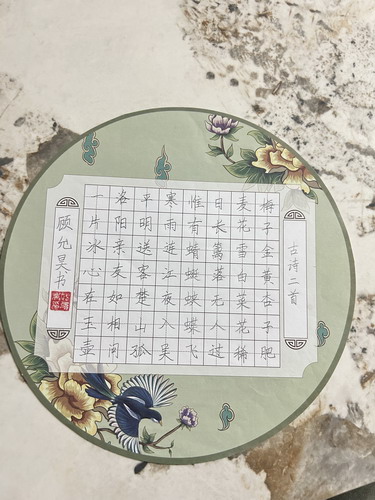 古诗二首
梅子金黄杏子肥
麦花雪白菜花稀
日长篱落无人过
惟有蜻蜓蛱蝶飞
寒雨连江夜入吴
平明送客楚山孤
洛阳亲友如相问
一片冰心在玉壶
顾允昊书